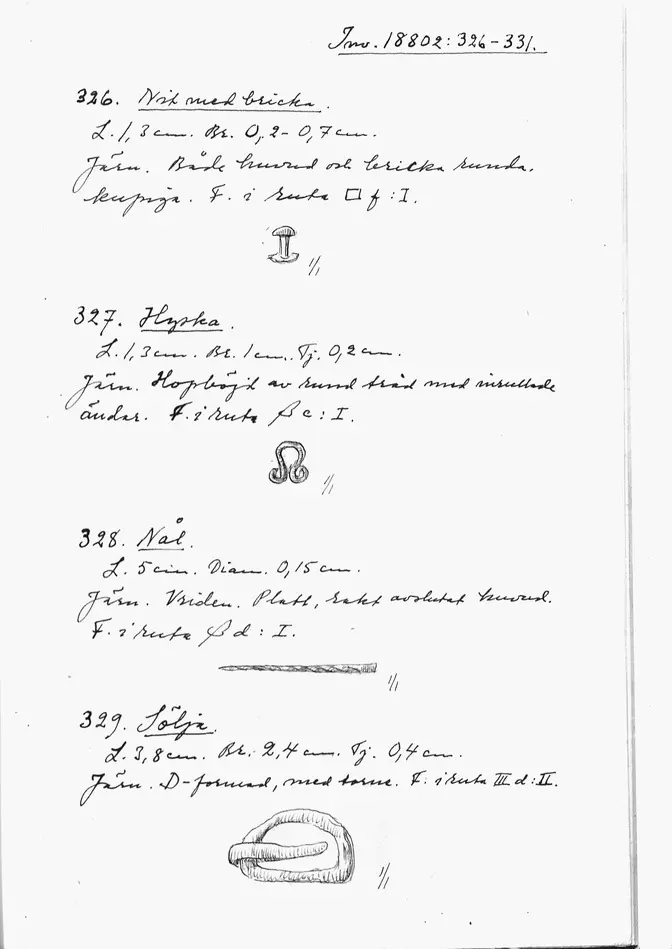 Inv. 18802: 326-331.
326. Nit med bricka.
L. 1,3 cm. Br. 0,2-0,7 cm.
Järn. Både huvud och bricka runda,
kupiga. F. i ruta □ f : I.
1/1
327. Hyska.
L. 1,3 cm. Br. 1 cm. Tj. 0,2 cm.
Järn. Hopböjd av rund tråd med inrullade
ändar. F. i ruta β c : I.
1/1
328. Nål.
L. 5 cm. Diam. 0,15 cm.
Järn. Vriden. Platt, rakt avslutat huvud.
F. i ruta β d : I.
1/1
329. Sölja.
L. 3,8 cm. Br. 2,4 cm. Tj. 0,4 cm.
Järn. D-formad, med torne. F. i ruta III d : II.
1/1